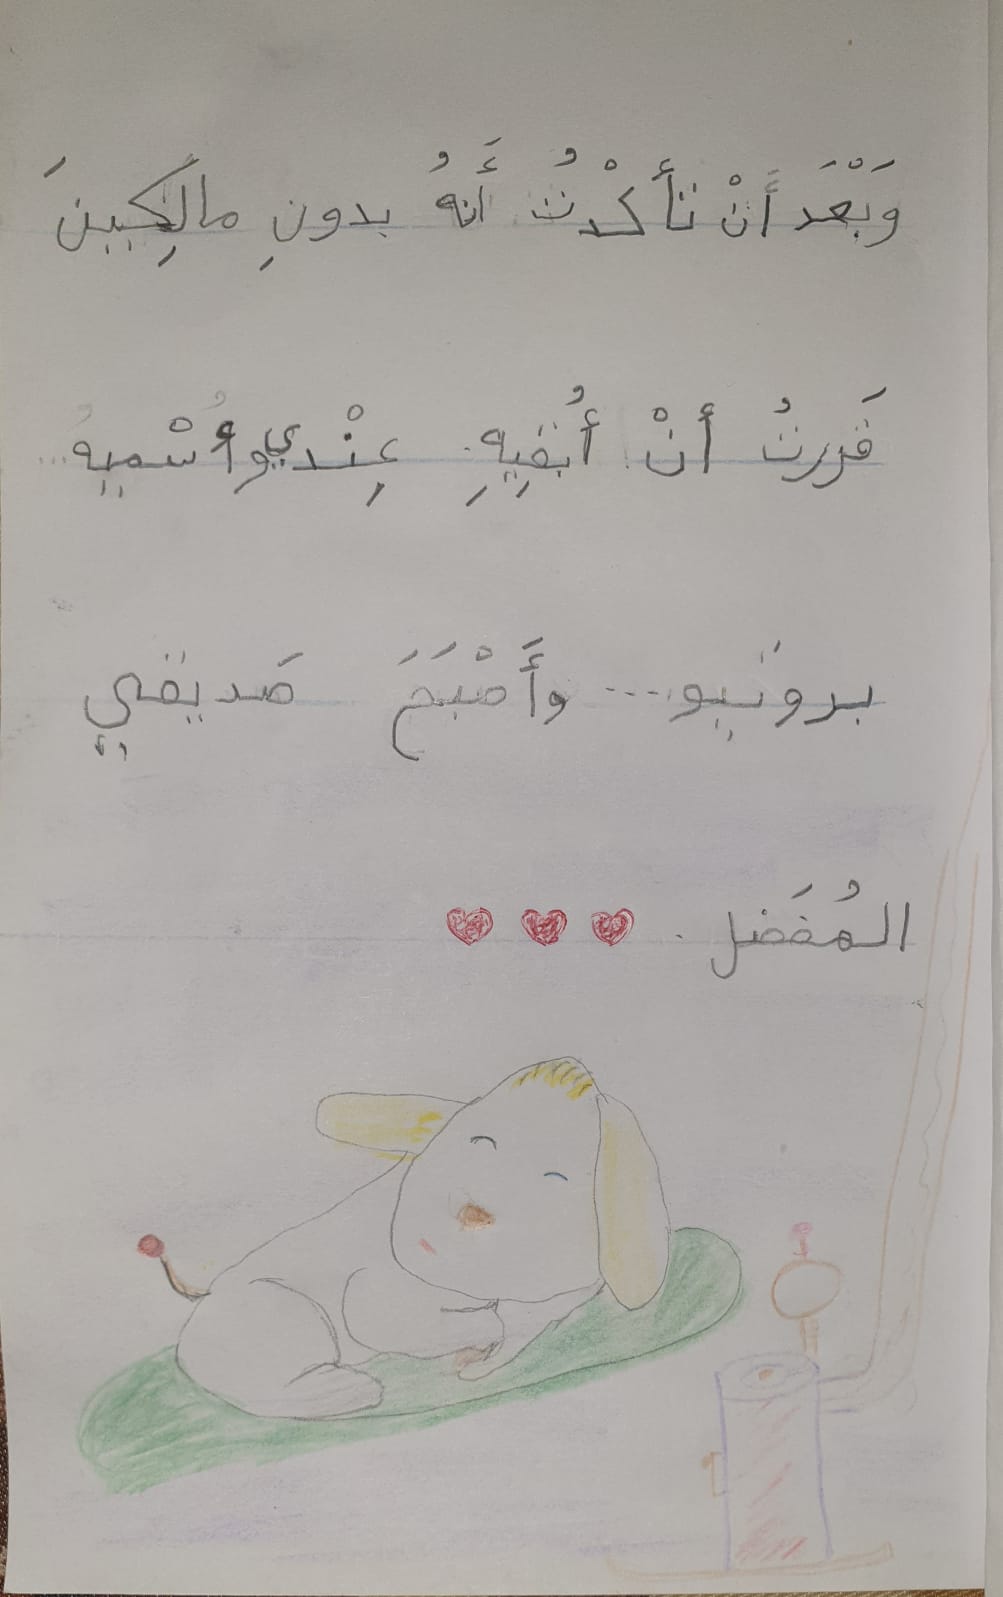 وَبَعْدَ أَنْ تأكدْتُ أَنهُ بدونِ مالِكِيينَ
قَررتُ أنْ أُبقِيهِ عِنْدي وأُسْميهُ...
برونَيو... وأَصْبَحَ صَديقي
المُفَضل. ♥ ♥ ♥